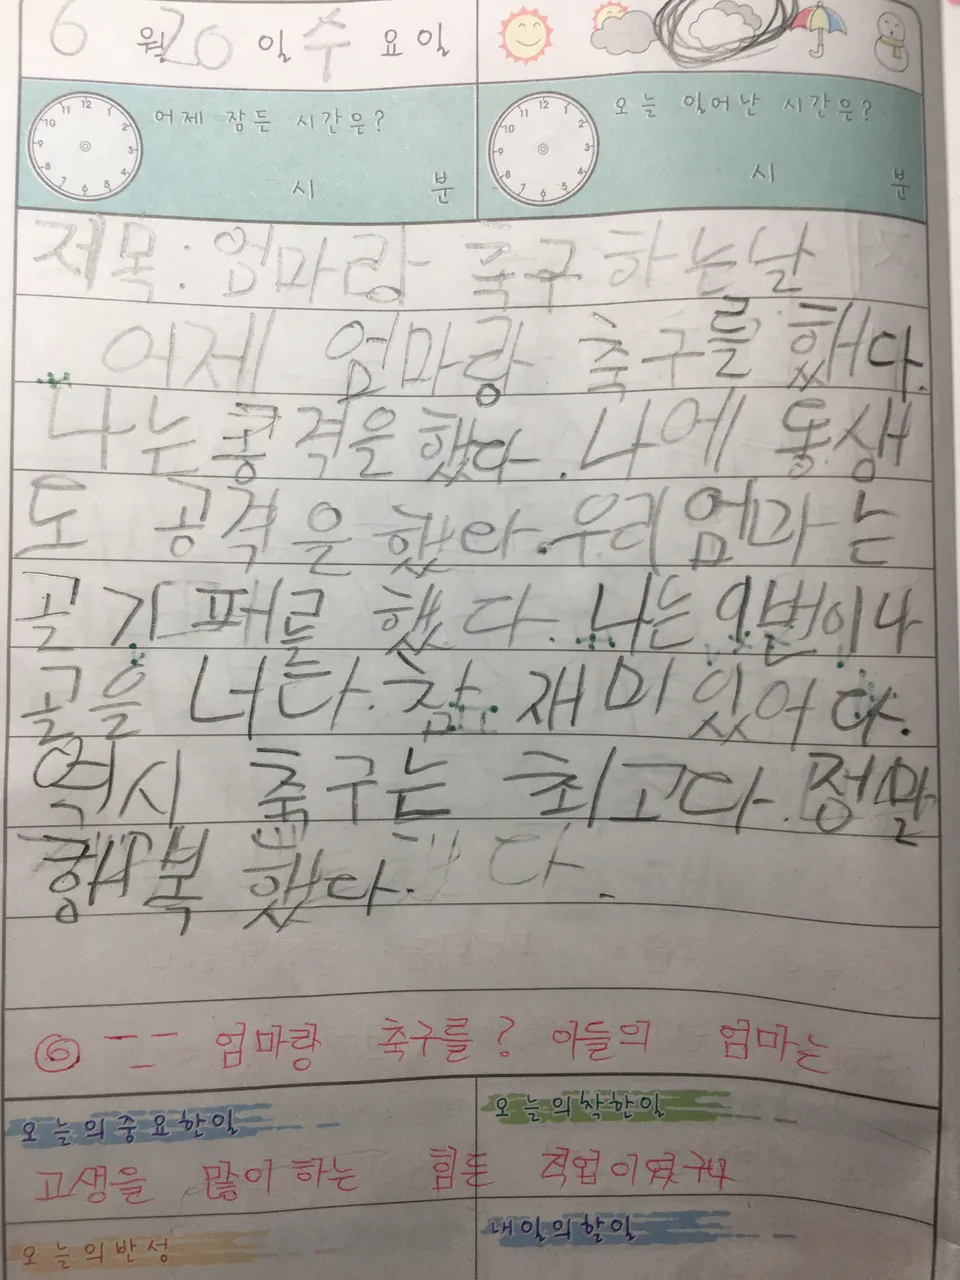 6 월 20 일 수 요일
어제 잠든 시간은?
오늘 일어난 시간은?
12 1 2 3 4 5 6 7 8 9 10 11
12 1 2 3 4 5 6 7 8 9 10 11
시 분
시 분
제목: 엄마랑 축구하는날
어제 엄마랑 축구를 했다.
나는 공격을 했다. 나에 동생
도 공격을 했다. 우리 엄마는
골기퍼를 했다. 나는 일번이나
골을 너다. 참 재미있어다.
역시 축구는 최고다. 정말
행복했다.
엄마랑 축구를? 아들의 엄마는
오늘의 중요한일
오늘의 착한일
고생을 많이 하는 힘든 직업이였구나
오늘의 반성
내일의 할일